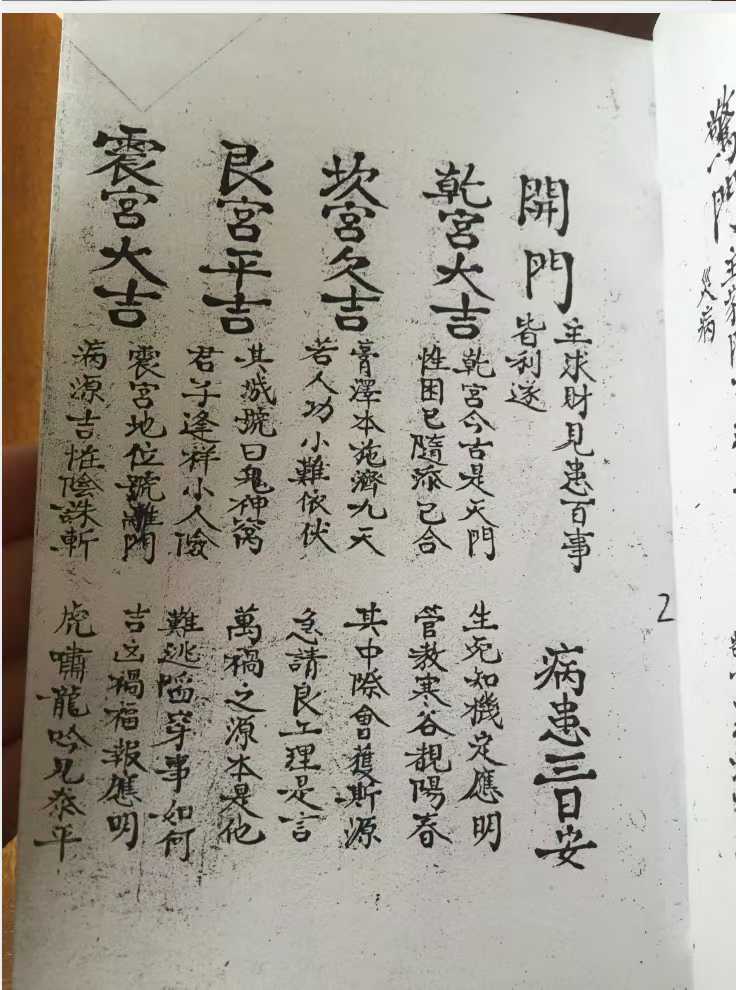 開門 主求財見患百事皆利遂 病患三日安
乾宮大吉 乾宮今古是天門 生死知機定應明
性困已隨 已合 管教寒谷靚陽春
坎宮久吉 膏澤本施濟九天 其中際會獲斯源
若人功小難依伏 急請良工理是言
艮宮平吉 其城號曰鬼神窩 萬禍之源本是他
君子逢祥小人儉 難逃陷穽事如何
震宮大吉 震宮地位號雛門 吉凶禍福報應明
病源吉恠陰誅斬 虎嘯龍吟見泰平
2
驚門 主
災病